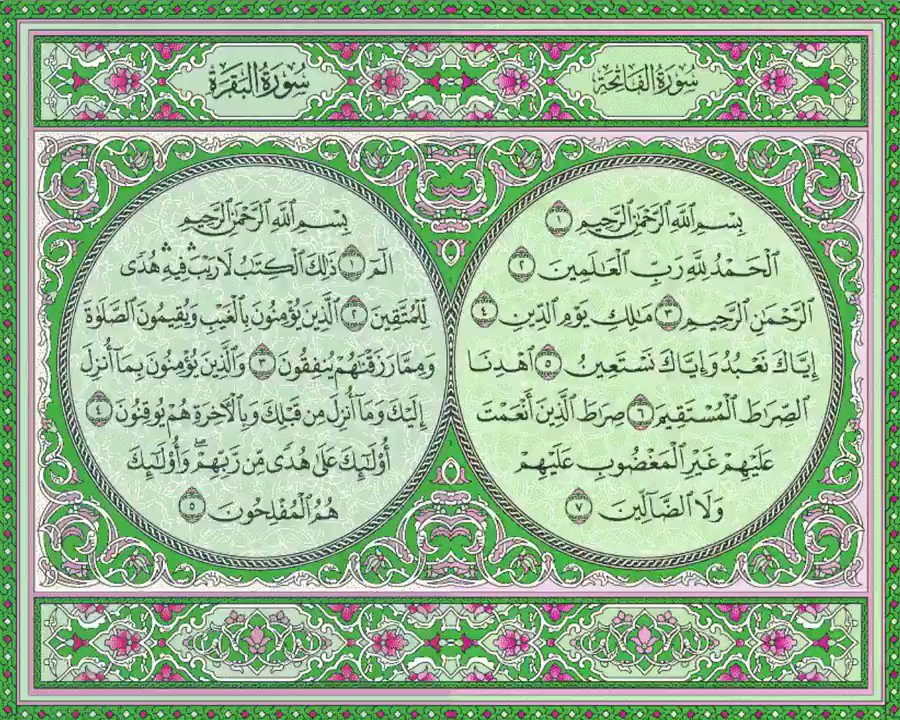 سُورَةُ الفَاتِحَة
بِسْمِ اللَّهِ الرَّحْمَٰنِ الرَّحِيمِ ١
الْحَمْدُ لِلَّهِ رَبِّ الْعَالَمِينَ ٢
الرَّحْمَٰنِ الرَّحِيمِ ٣ مَالِكِ يَوْمِ الدِّينِ ٤
إِيَّاكَ نَعْبُدُ وَإِيَّاكَ نَسْتَعِينُ ٥ اهْدِنَا
الصِّرَاطَ الْمُسْتَقِيمَ ٦ صِرَاطَ الَّذِينَ أَنْعَمْتَ
عَلَيْهِمْ غَيْرِ الْمَغْضُوبِ عَلَيْهِمْ
وَلَا الضَّالِّينَ ٧
سُورَةُ البَقَرَة
بِسْمِ اللَّهِ الرَّحْمَٰنِ الرَّحِيمِ
الٓمٓ ١ ذَٰلِكَ الْكِتَابُ لَا رَيْبَ ۛ فِيهِ ۛ هُدًى
لِلْمُتَّقِينَ ٢ الَّذِينَ يُؤْمِنُونَ بِالْغَيْبِ وَيُقِيمُونَ الصَّلَاةَ
وَمِمَّا رَزَقْنَاهُمْ يُنْفِقُونَ ٣ وَالَّذِينَ يُؤْمِنُونَ بِمَا أُنْزِلَ
إِلَيْكَ وَمَا أُنْزِلَ مِنْ قَبْلِكَ وَبِالْآخِرَةِ هُمْ يُوقِنُونَ ٤
أُولَٰئِكَ عَلَىٰ هُدًى مِنْ رَبِّهِمْ ۖ وَأُولَٰئِكَ
هُمُ الْمُفْلِحُونَ ٥